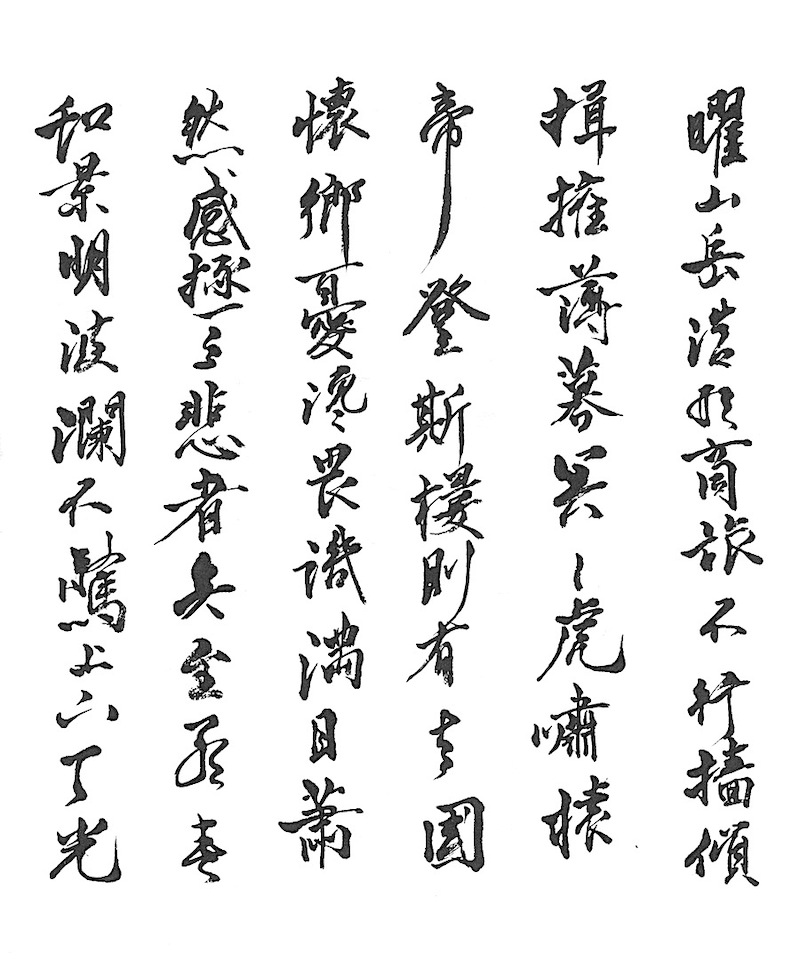 曜山岳潛形商旅不行檣傾
楫摧薄暮冥々虎嘯猿
帝登斯樓則有去國
懷鄉憂讒畏譏滿目蕭
然感極而悲者矣至若春
和景明波瀾不驚上下天光